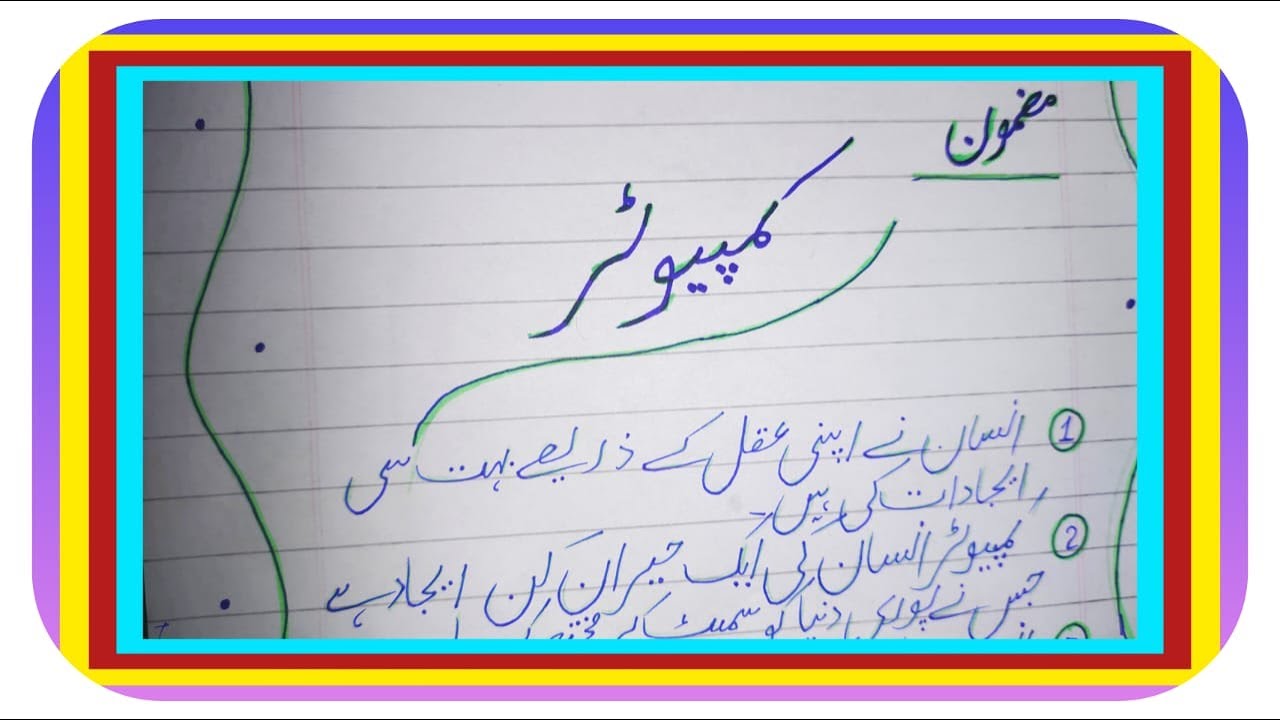 مضمون
کمپیوٹر
① انسان نے اپنی عقل کے ذریعے بہت سی
ایجادات کی ہیں۔
② کمپیوٹر انسان کی ایک حیران کن ایجاد ہے
جس نے پوری دنیا کو سمیٹ کر